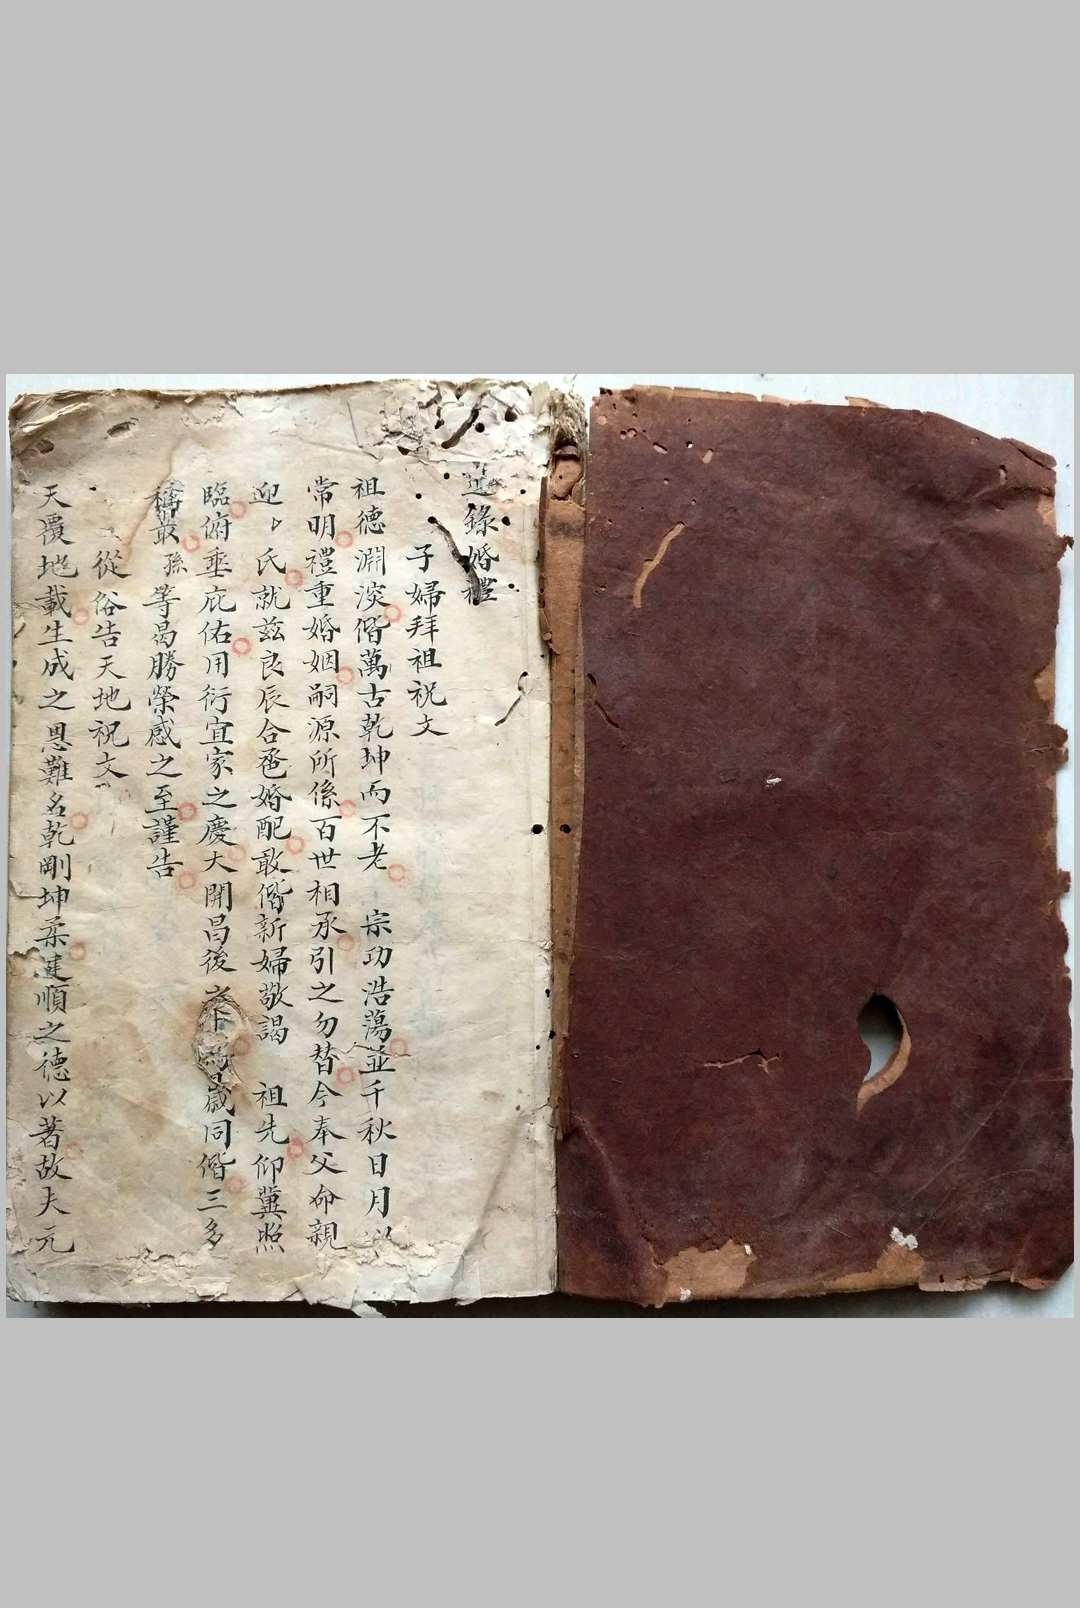 選錄婚禮
子婦拜祖祝文
祖德淵淡偕萬古乾坤而不老 宗功浩蕩並千秋日月
常明禮重婚姻嗣源所係百世相承引之勿替今奉父命親
迎〻氏就兹良辰合卺婚配敢偕新婦敬謁 祖先仰冀照
臨俯垂庇佑用衍宜家之慶大開昌後之歲同偕三多
稱最孫等曷勝榮感之至謹告
從俗告天地祝文
天覆地載生成之恩難名乾剛坤柔健順之德以著故大元